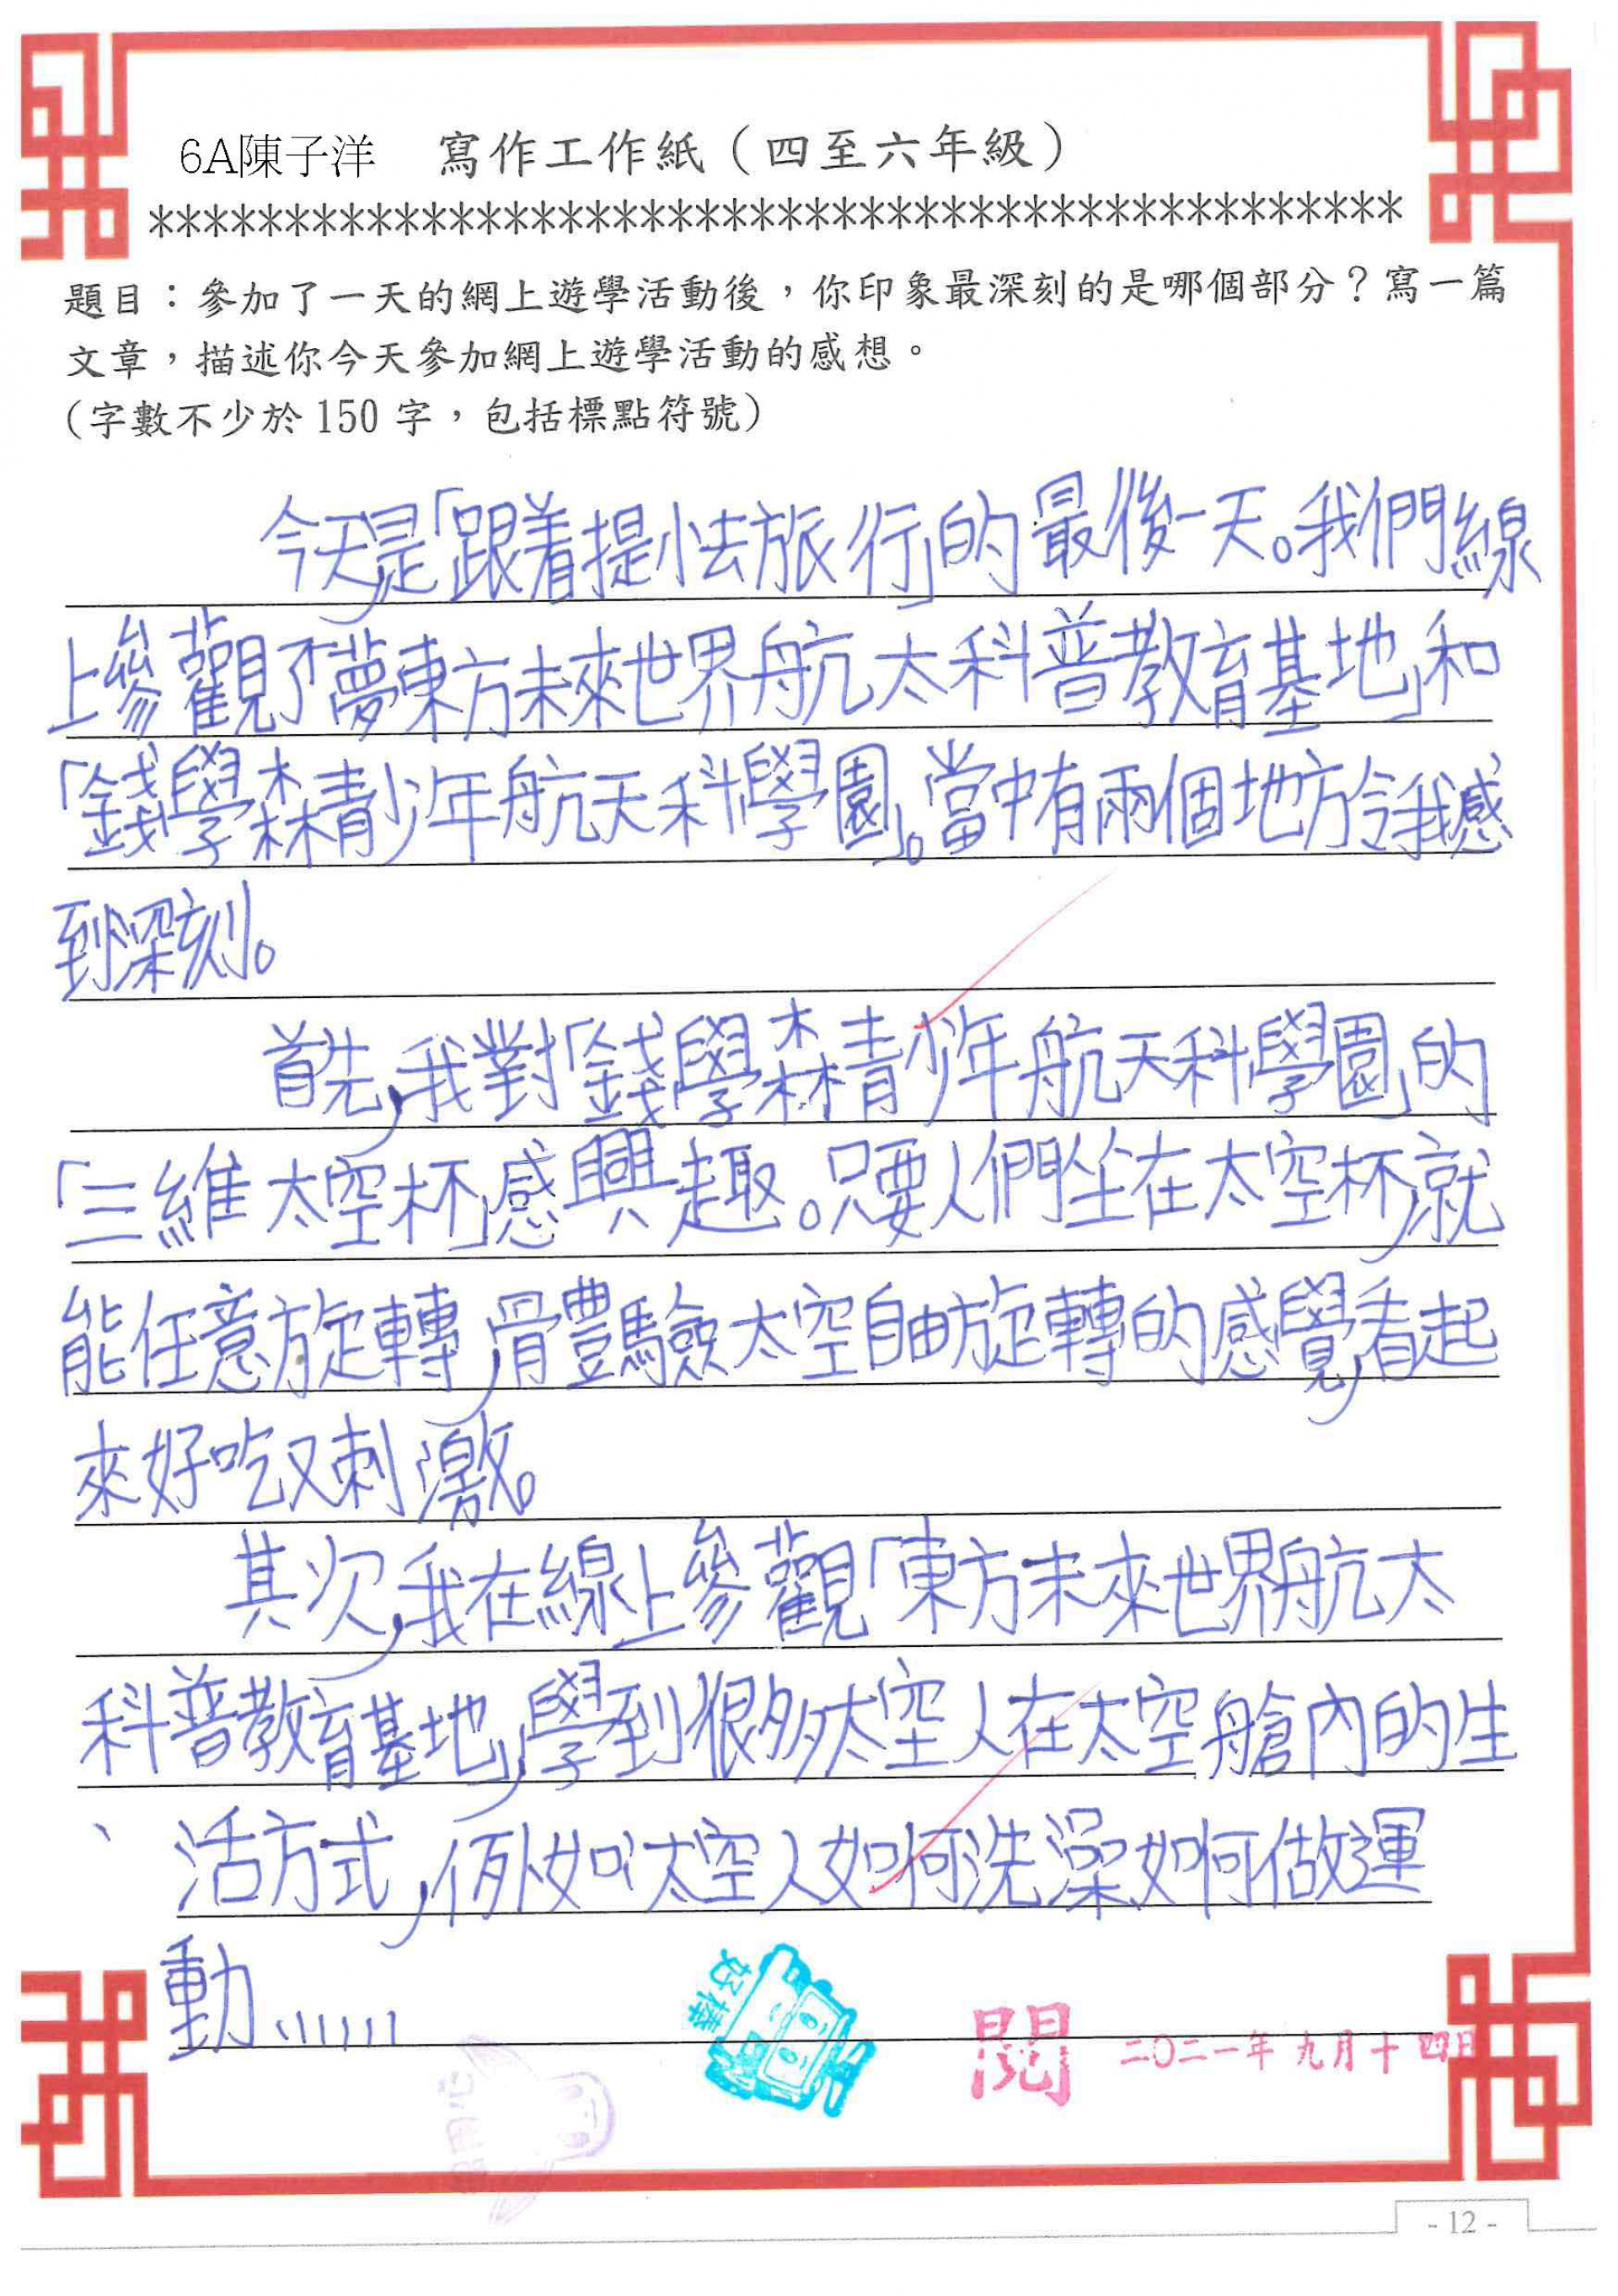 6A陳子洋 寫作工作紙（四至六年級）
***********************************************
題目：參加了一天的網上遊學活動後，你印象最深刻的是哪個部分？寫一篇
文章，描述你今天參加網上遊學活動的感想。
（字數不少於 150 字，包括標點符號）
今天，是「跟着提小去旅行」的最後一天。我們線
上參觀了「夢東方未來世界航太科普教育基地」和
「錢學森青少年航天科學園」。當中有兩個地方令我感
到深刻。
首先，我對「錢學森青少年航天科學園」的
「三維太空杯」感興趣。只要人們坐在太空杯，就
能任意旋轉，體驗太空自由旋轉的感覺，看起
來好吃又刺激。
其次，我在線上參觀「東方未來世界航太
科普教育基地」，學到很多太空人在太空艙內的生
活方式，例如：太空人如何洗澡、如何做運
動……
好棒
閱 二〇二一年九月十四日
- 12 -